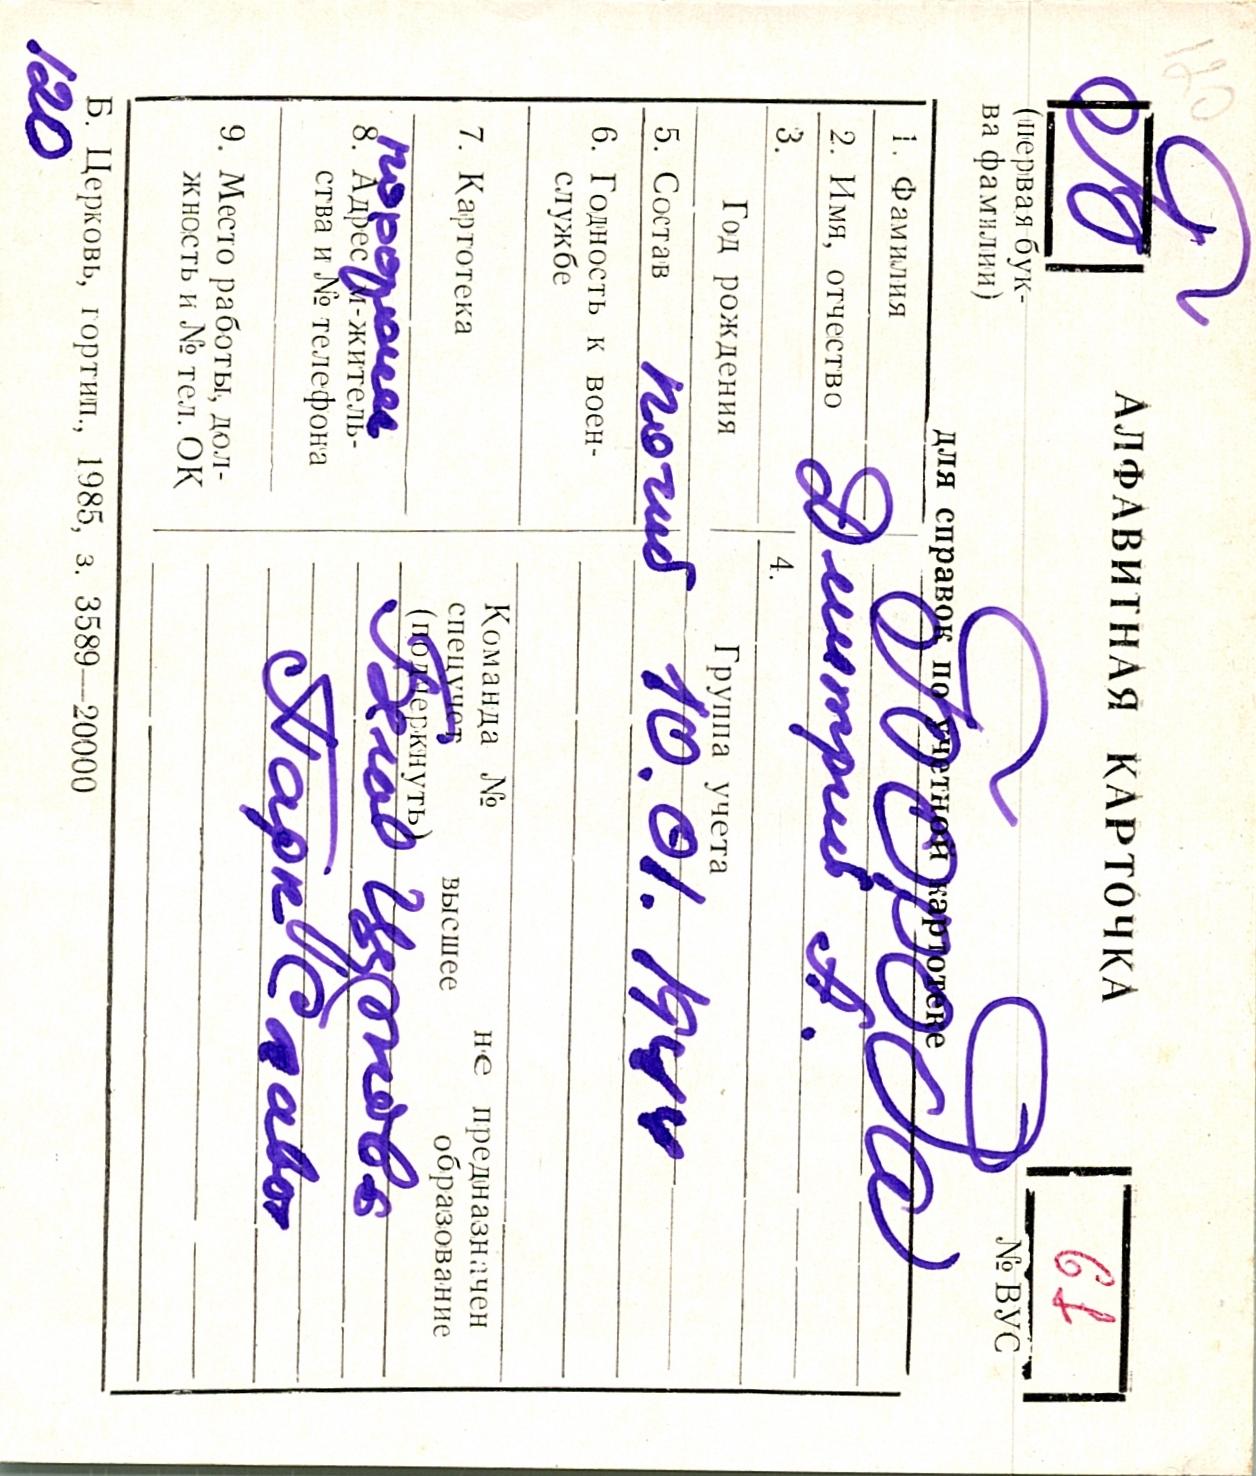 120
АЛФАВИТНАЯ КАРТОЧКА
(первая бук-
ва фамилии)
для справок по учетной картотеке
№ ВУС
1. Фамилия
2. Имя, отчество Дмитрий А.
3. 4.
Год рождения Группа учета
5. Состав погиб 10.01.1944
6. Годность к воен-
службе
7. Картотека
Команда № не предназначен
спецучет высшее образование
(подчеркнуть)
8. Адрес м-житель-
ства и № телефона
9. Место работы, дол-
жность и № тел. ОК
Парк Славы
Б. Церковь, гортип., 1985, з. 3589—20000
120